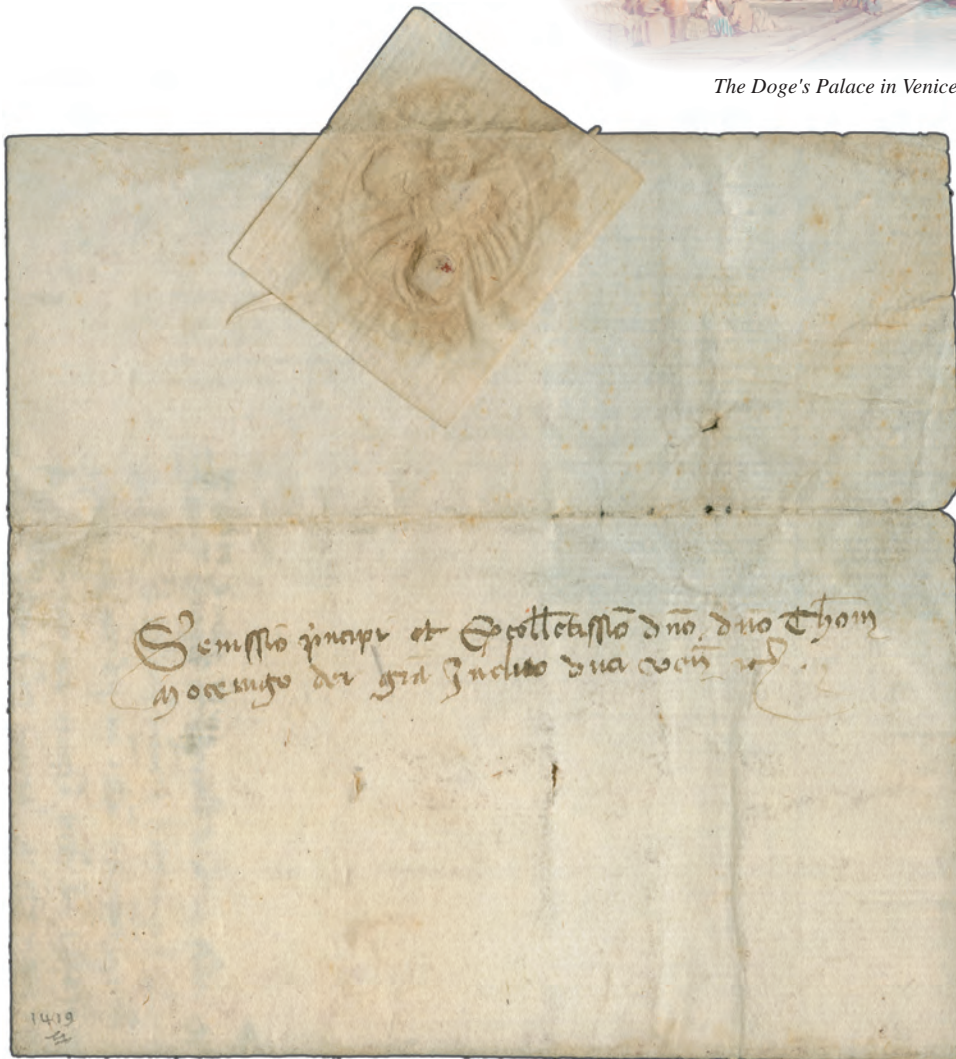 The Doge's Palace in Venice
Serenissīo p̄ncipi et Excellētissīo dn̄o, dn̄o Thom̄
Mocenigo dei grā Inclito duci veñ
1419